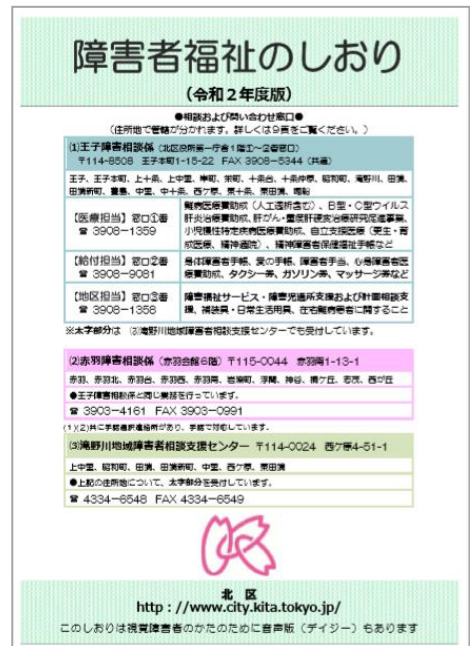 障害者福祉のしおり
(令和2年度版)
●相談および問い合わせ窓口●
(住所地で管轄が分かれます。詳しくは9頁をご覧ください。)
(1)王子障害相談係(北区役所第一庁舎1階①~②番窓口)
〒114-8508 王子本町1-15-22 FAX 3908-5344(共通)
王子、王子本町、上十条、上中里、岸町、栄町、十条台、十条仲原、昭和町、滝野川、田端、
田端新町、豊島、中里、中十条、西ケ原、東十条、東田端、堀船
【医療担当】窓口①番
☎ 3908-1359
難病医療費助成(人工透析含む)、B型・C型ウイルス
肝炎治療費助成、肝がん・重度肝硬変治療研究促進事業、
小児慢性特定疾病医療費助成、自立支援医療(更生・育
成医療、精神通院)、精神障害者保健福祉手帳など
【給付担当】窓口②番
☎ 3908-9081
身体障害者手帳、愛の手帳、障害者手当、心身障害者医
療費助成、タクシー券、ガソリン券、マッサージ券など
【地区担当】窓口②番
☎ 3908-1358
障害福祉サービス・障害児通所支援および計画相談支
援、補装具・日常生活用具、在宅難病患者に関すること
※太字部分は (3)滝野川地域障害者相談支援センターでも受付しています。
(2)赤羽障害相談係(赤羽会館6階)〒115-0044 赤羽南1-13-1
赤羽、赤羽北、赤羽台、赤羽西、赤羽南、岩淵町、浮間、神谷、桐ケ丘、志茂、西が丘
●王子障害相談係と同じ業務を行っています。
☎ 3903-4161 FAX 3903-0991
(1)(2)共に手話通訳連絡所があり、手話で対応しています。
(3)滝野川地域障害者相談支援センター 〒114-0024 西ケ原4-51-1
上中里、昭和町、田端、田端新町、中里、西ケ原、東田端
●上記の住所地について、太字部分を受付しています。
☎ 4334-6548 FAX 4334-6549
北 区
http://www.city.kita.tokyo.jp/
このしおりは視覚障害者のかたのために音声版(デイジー)もあります